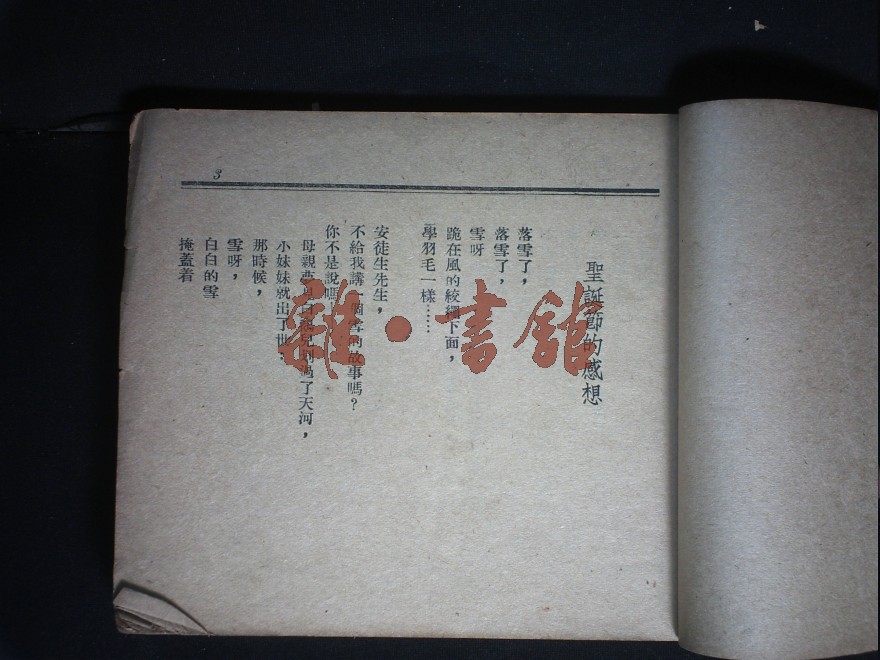 3
聖誕節的感想
落雪了,
落雪了,
雪呀
跪在風的絞綱下面,
學羽毛一樣……
安徒生先生,
不給我講一個雪的故事嗎?
你不是說嗎
母親夢 過了天河,
小妹妹就出了世
那時候,
雪呀,
白白的雪
掩蓋着
雜·書館